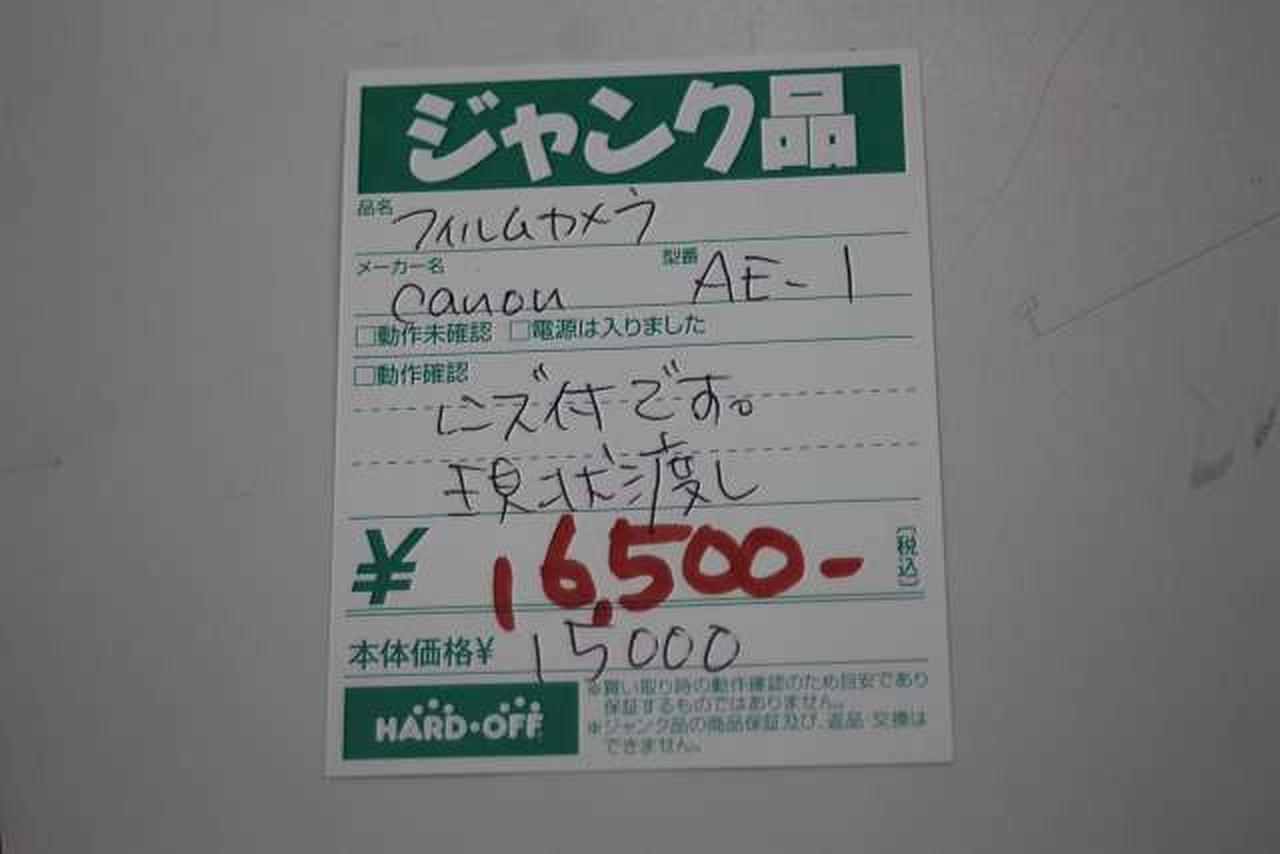 ジャンク品
品名 フィルムカメラ
メーカー名 Canon 型番 AE-1
□動作未確認 □電源は入りました
□動作確認
レンズ付です。
現状渡し
¥ 16,500- 〔税込〕
本体価格¥ 15000
HARD・OFF
※買い取り時の動作確認のため目安であり
保証するものではありません。
※ジャンク品の商品保証及び、返品・交換は
できません。